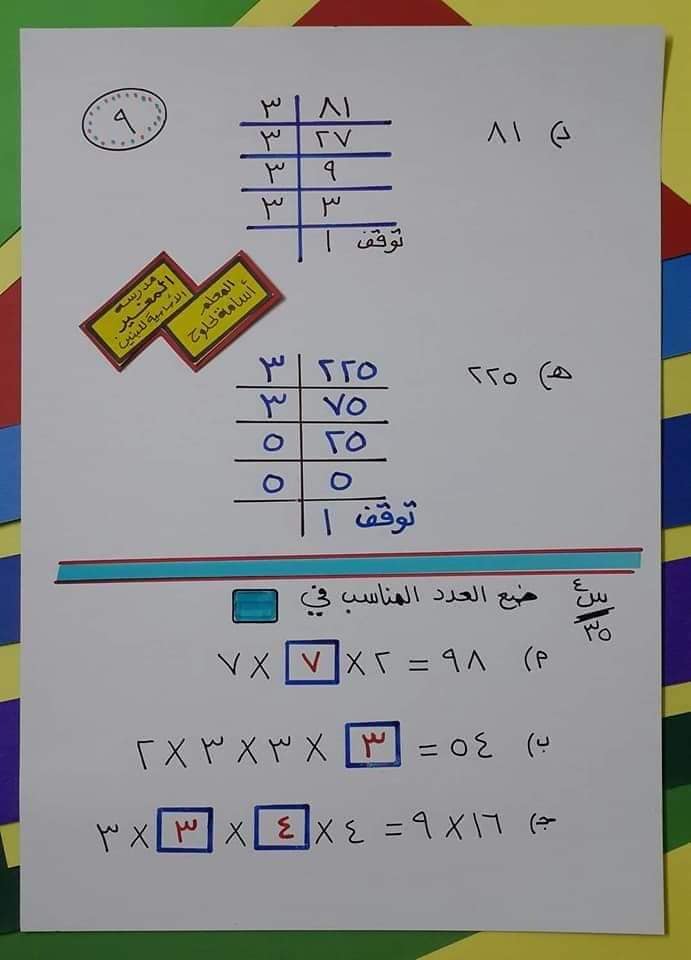 ٩
د) ٨١
٨١ | ٣
٢٧ | ٣
٩ | ٣
٣ | ٣
١ توقف
المعلم
أسامة لحلوح
مدرسة
المغير
الأساسية للبنين
هـ) ٢٢٥
٢٢٥ | ٣
٧٥ | ٣
٢٥ | ٥
٥ | ٥
١ توقف
س٤
٣٥
ضع العدد المناسب في
م) ٩٨ = ٢ × ٧ × ٧
ب) ٥٤ = ٣ × ٣ × ٣ × ٢
ج) ١٦ × ٩ = ٤ × ٤ × ٣ × ٣